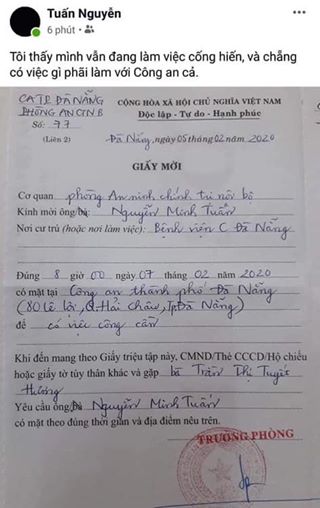 Tuấn Nguyễn
6 phút
Tôi thấy mình vẫn đang làm việc cống hiến, và chẳng
có việc gì phãi làm với Công an cả.
CA TP ĐÀ NẴNG
CỘNG HÒA XÃ HỘI CHỦ NGHĨA VIỆT NAM
PHÒNG ANCTNB
Độc lập - Tự do - Hạnh phúc
Số: 77
(Liên 2)
Đà Nẵng, ngày 05 tháng 02 năm 2020
GIẤY MỜI
Cơ quan phòng An ninh chính trị nội bộ
Kính mời ông/bà: Nguyễn Minh Tuấn
Nơi cư trú (hoặc nơi làm việc): Bệnh viện C Đà Nẵng
Đúng 8 giờ 00 ngày 07 tháng 02 năm 2020
có mặt tại Công an thành phố Đà Nẵng
(80 Lê Lợi, Q. Hải Châu, Tp Đà Nẵng)
để có việc công cần
Khi đến mang theo Giấy triệu tập này, CMND/Thẻ CCCD/Hộ chiếu
hoặc giấy tờ tùy thân khác và gặp bà Trần Thị Tuyết
Hương
Yêu cầu ông/bà Nguyễn Minh Tuấn
có mặt theo đúng thời gian và địa điểm nêu trên.
TRƯỞNG PHÒNG